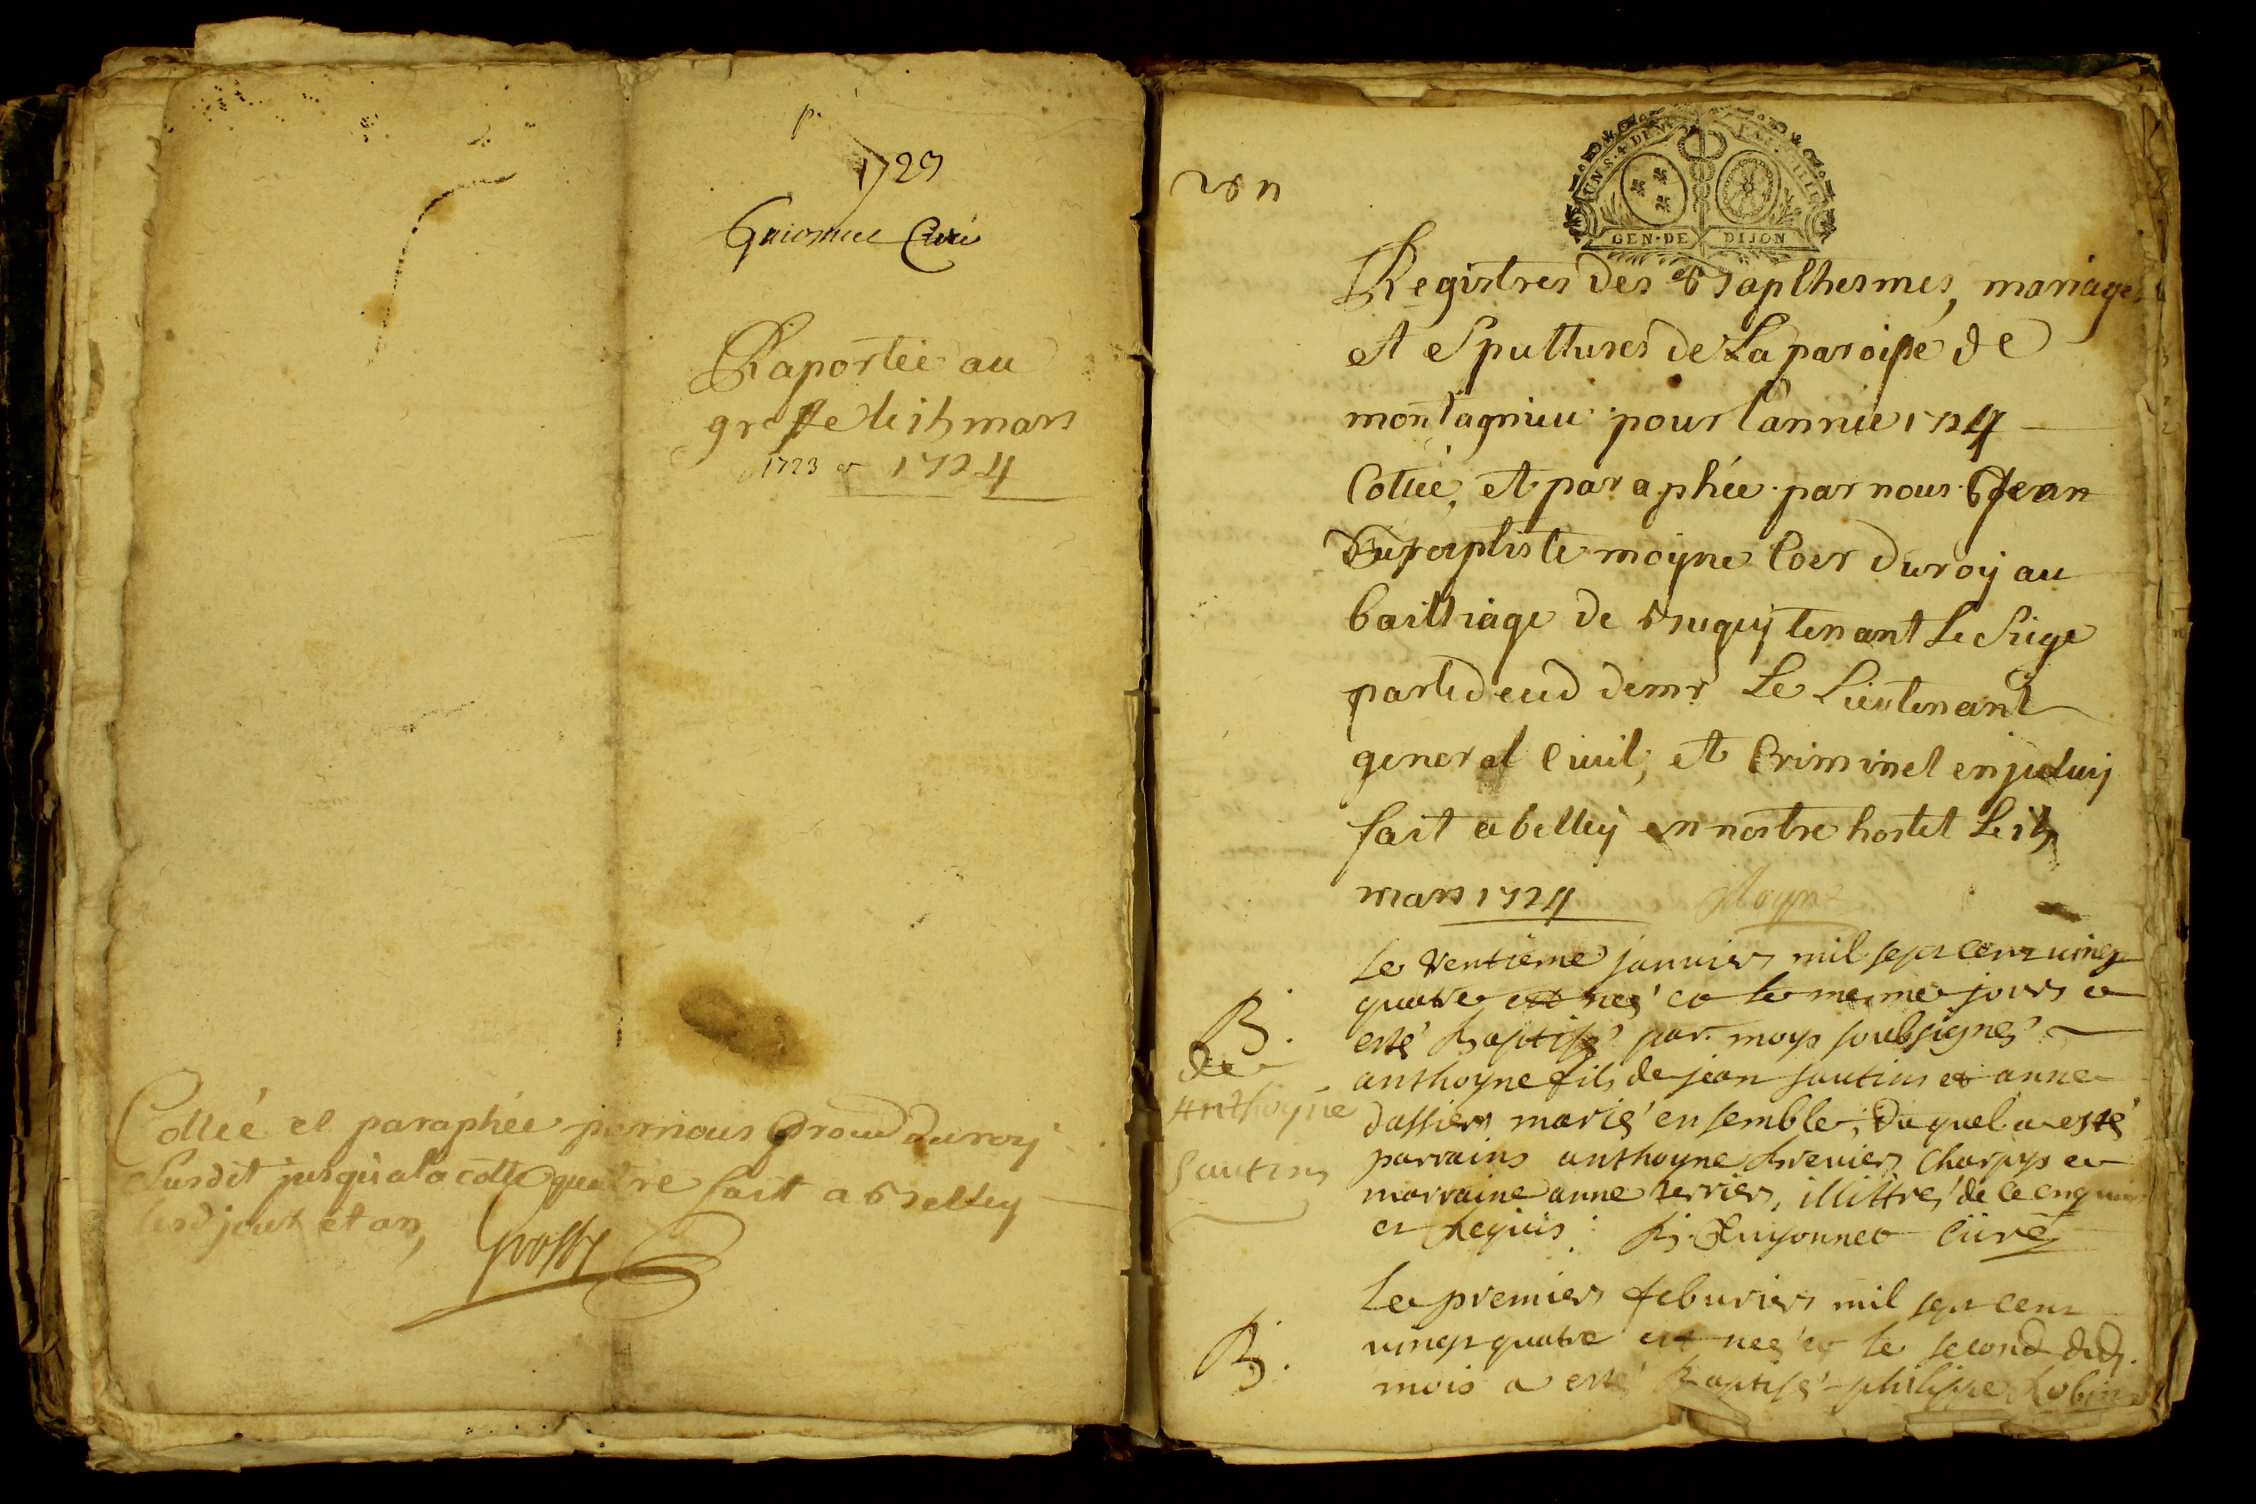 p.
1723
Curé
Raportée au
greffe le 15 mars
1723 et 1724
Cottée et paraphée par nous Proc du roy
susdit jusqu'a la cotte quatre fait a Belley
lesd jour et an,
UN S. 4 DEN
GEN·DE DIJON
Registres des Bapthesmes, mariages
et Spultures de La paroisse de
montagnieu pour l'année 1724
Cottée, et paraphée par nous Jean
Baptiste moyne Coer du roy au
bailliage de Bugey tenant Le Siege
par led eud de mr Le Lieutenant
general Civil, et Criminel en jceluy
fait a belley en nostre hostel Le 15
mars 1724 Moyne
B.
de
Anthoyne
Sautin
le ventieme janvier mil sept cent vingt
quatre est neé et le mesme jour a
esté Baptisé par moy soubsigné
anthoyne fils de jean sautin et anne
dassier marié ensemble, duquel a esté
parrains anthoyne Charpy et
marraine anne terrier, illittré de ce enquis
et Requis : Guyonnet Curé
B.
Le premier feburier mil sept cent
vingt quatre est neé et le second dud.
mois a esté Baptisé philippe Robin